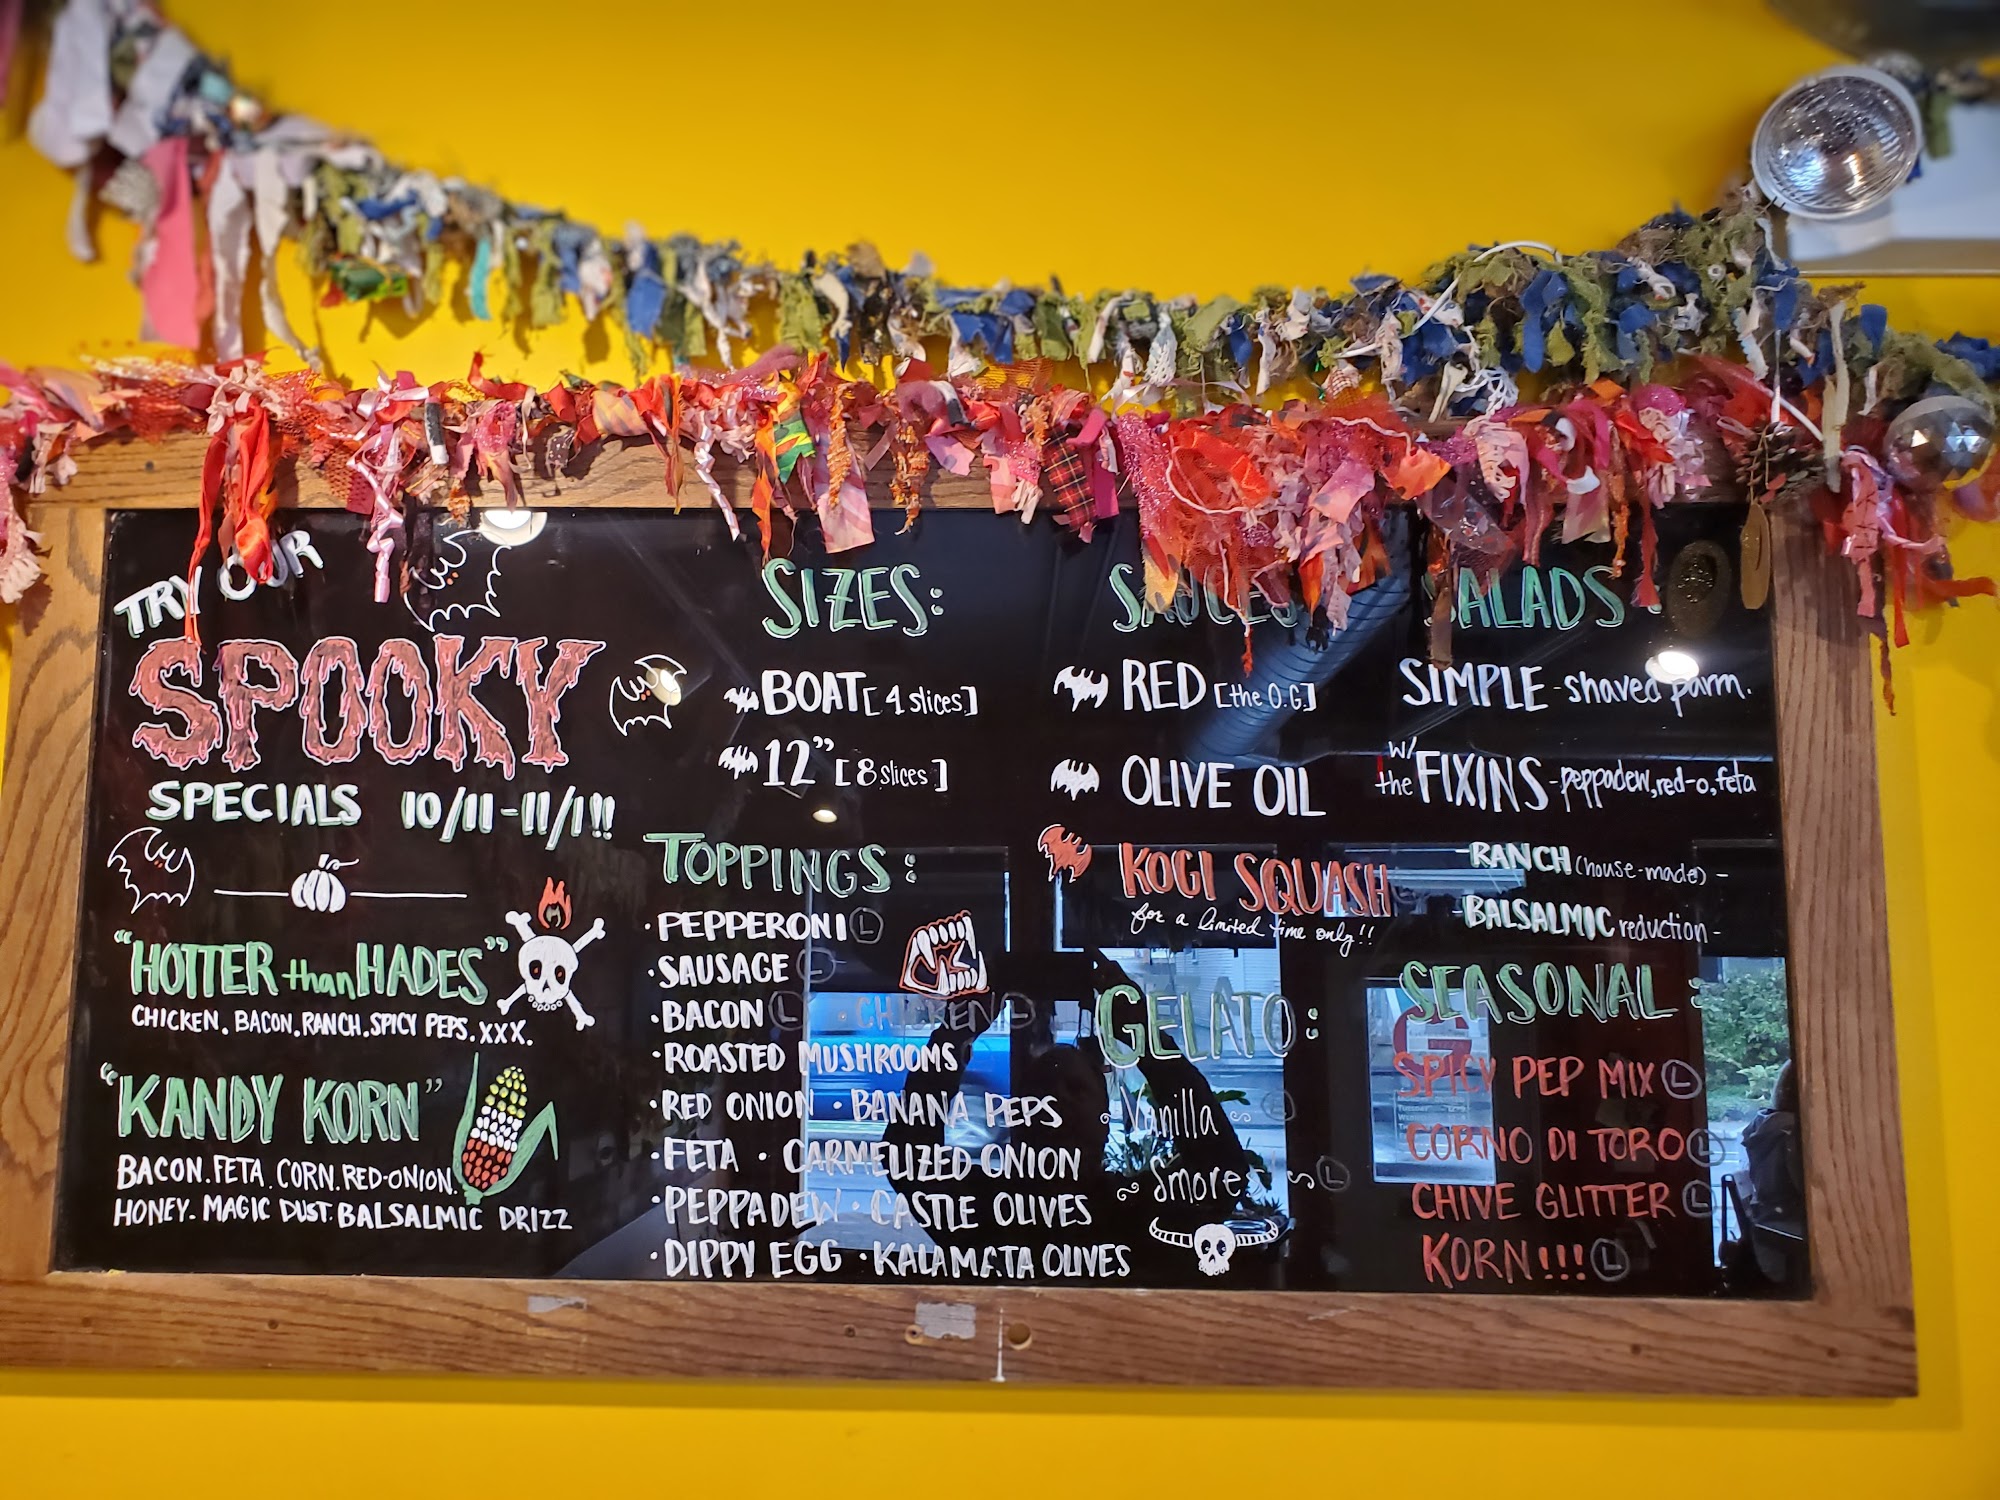 TRY OUR
SPOOKY
SPECIALS 10/11-11/1!!
"HOTTER than HADES"
CHICKEN. BACON. RANCH. SPICY PEPS. XXX.
"KANDY KORN"
BACON. FETA. CORN. RED-ONION.
HONEY. MAGIC DUST. BALSALMIC DRIZZ
SIZES:
BOAT [4 slices]
12" [8 slices]
TOPPINGS:
·PEPPERONI Ⓛ
·SAUSAGE Ⓛ
·BACON Ⓛ ·CHICKEN Ⓛ
·ROASTED MUSHROOMS
·RED ONION ·BANANA PEPS
·FETA ·CARMELIZED ONION
·PEPPADEW ·CASTLE OLIVES
·DIPPY EGG ·KALAMATA OLIVES
SAUCES
RED [the O.G.]
OLIVE OIL
KOGI SQUASH
for a limited time only!!
GELATO:
Vanilla Ⓛ
Smores Ⓛ
SALADS:
SIMPLE -shaved parm.
w/ the FIXINS -peppadew, red-o, feta
RANCH (house-made) -
-BALSALMIC reduction-
SEASONAL:
SPICY PEP MIX Ⓛ
CORNO DI TORO Ⓛ
CHIVE GLITTER Ⓛ
KORN!!! Ⓛ